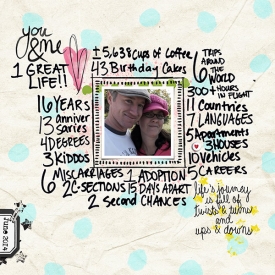 you
& me
1 GREAT
LIFE!!
± 5,638 cups of Coffee
43 Birthday Cakes
6 TRIPS
AROUND
THE
WORLD
300+ HOURS
IN FLIGHT
16 YEARS
13 anniver
saries
4 DEGREES
3 KIDDOS
11 Countries
7 LANGUAGES
5 Apartments
3 HOUSES
10 Vehicles
5 CAREERS
6 MISCARRIAGES 1 ADOPTION
2 C-SECTIONS 15 DAYS APART
2 Second CHANCES
life's journey
is full of
twists & turns
and
ups & downs
June 2014